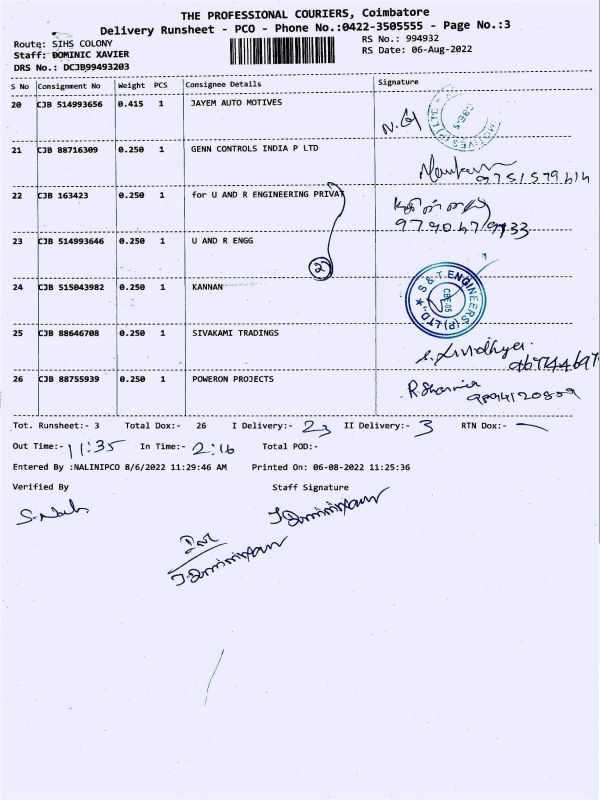 THE PROFESSIONAL COURIERS, Coimbatore
Delivery Runsheet - PCO - Phone No.:0422-3505555 - Page No.:3
Route: SIHS COLONY
RS No.: 994932
Staff: DOMINIC XAVIER
RS Date: 06-Aug-2022
DRS No.: DCJB99493203
S No Consignment No Weight PCS Consignee Details Signature
20 CJB 514993656 0.415 1 JAYEM AUTO MOTIVES
21 CJB 88716309 0.250 1 GENN CONTROLS INDIA P LTD
22 CJB 163423 0.250 1 for U AND R ENGINEERING PRIVAT
23 CJB 514993646 0.250 1 U AND R ENGG
2
24 CJB 515043982 0.250 1 KANNAN
S & T.ENGINEERS(P)LTD., CBE-05
25 CJB 88646708 0.250 1 SIVAKAMI TRADINGS
26 CJB 88755939 0.250 1 POWERON PROJECTS
Tot. Runsheet:- 3 Total Dox:- 26 I Delivery:- 23 II Delivery:- 3 RTN Dox:- —
Out Time:- 11:35 In Time:- 2:16 Total POD:-
Entered By :NALINIPCO 8/6/2022 11:29:46 AM Printed On: 06-08-2022 11:25:36
Verified By Staff Signature